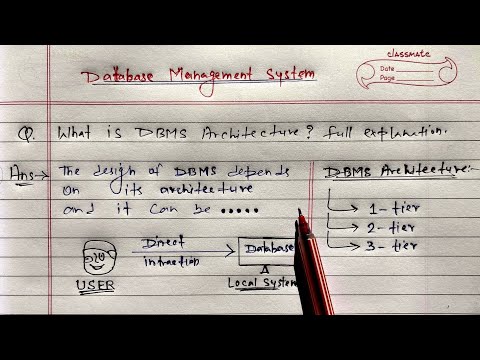 CLASSMATE
Date
Page
Database Management System
Q. What is DBMS Architecture? full explanation.
Ans→ The design of DBMS depends
on its architecture
and it can be .....
DBMS Architecture:-
1-tier
2-tier
3-tier
Direct
intraction
Database
USER
Local System